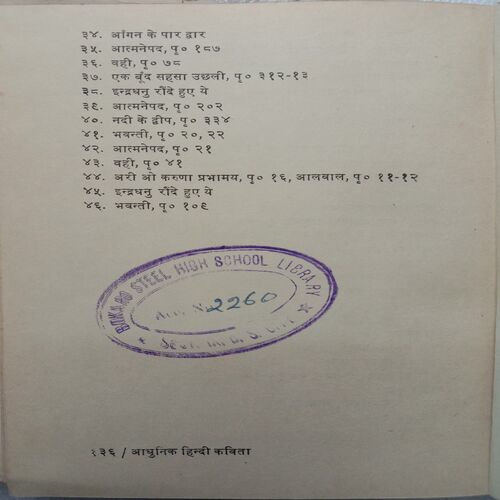 ३४. आँगन के पार द्वार
३५. आत्मनेपद, पृ० १८७
३६. वही, पृ० ७८
३७. एक बूँद सहसा उछली, पृ० ३१२-१३
३८. इन्द्रधनु रौंदे हुए ये
३९. आत्मनेपद, पृ० २०२
४०. नदी के द्वीप, पृ० ३३४
४१. भवन्ती, पृ० २०, २२
४२. आत्मनेपद, पृ० २१
४३. वही, पृ० ४१
४४. अरी ओ करुणा प्रभामय, पृ० १६, आलवाल, पृ० ११-१२
४५. इन्द्रधनु रौंदे हुए ये
४६. भवन्ती, पृ० १०९
BOKARO STEEL HIGH SCHOOL LIBRARY
2260
१३६ / आधुनिक हिन्दी कविता